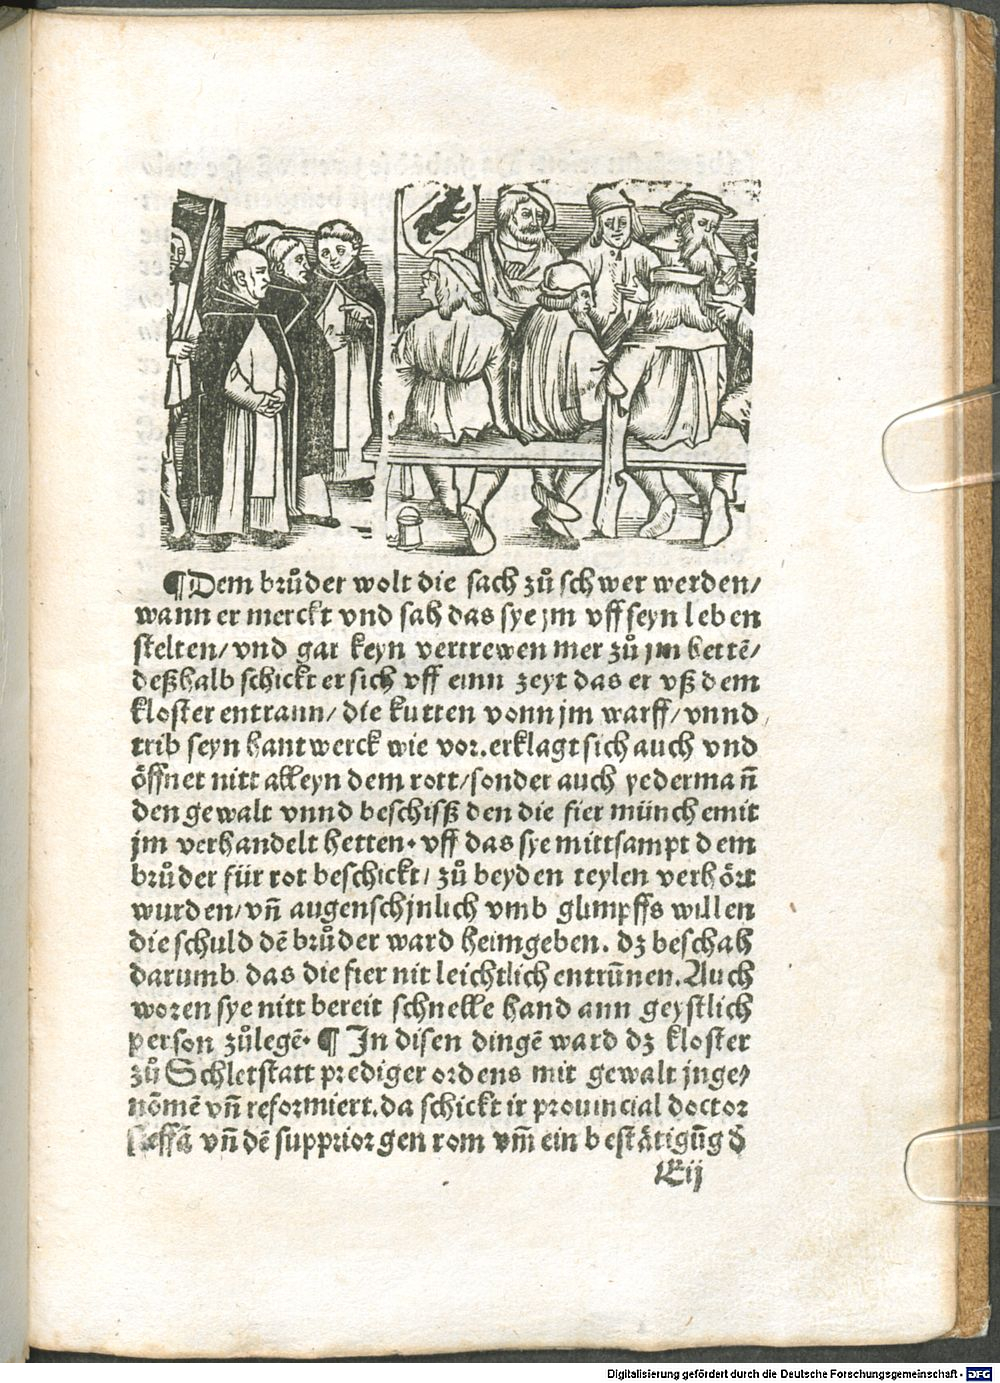 ¶Dem brůder wolt die sach zů schwer werden/
wann er merckt vnd sah das sye jm vff seyn leben
stelten/ vnd gar keyn vertrewen mer zů jm hettē/
deßhalb schickt er sich vff einn zeyt das er vß dem
kloster entrann/ die kutten vonn jm warff/ vnnd
trib seyn hantwerck wie vor. erklagt sich auch vnd
öffnet nitt alleyn dem rott/ sonder auch yedermañ
den gewalt vnnd beschisß den die fier münch emit
jm verhandelt hetten. vff das sye mittsampt dem
brůder für rot beschickt/ zů beyden teylen verhört
wurden/ vñ augenschjnlich vmb glimpffs willen
die schuld dē brůder ward heimgeben. dz beschah
darumb das die fier nit leichtlich entrūnen. Auch
woren sye nitt bereit schnelle hand ann geystlich
person zůlegē. ¶ In disen dingē ward dz kloster
zů Schletstatt prediger ordens mit gewalt jnge⸗
nōmē vñ reformiert. da schickt ir prouincial doctor
steffā vñ dē supprior gen rom vm̄ ein bestätigūg d̄
Eij
Digitalisierung gefördert durch die Deutsche Forschungsgemeinschaft - DFG